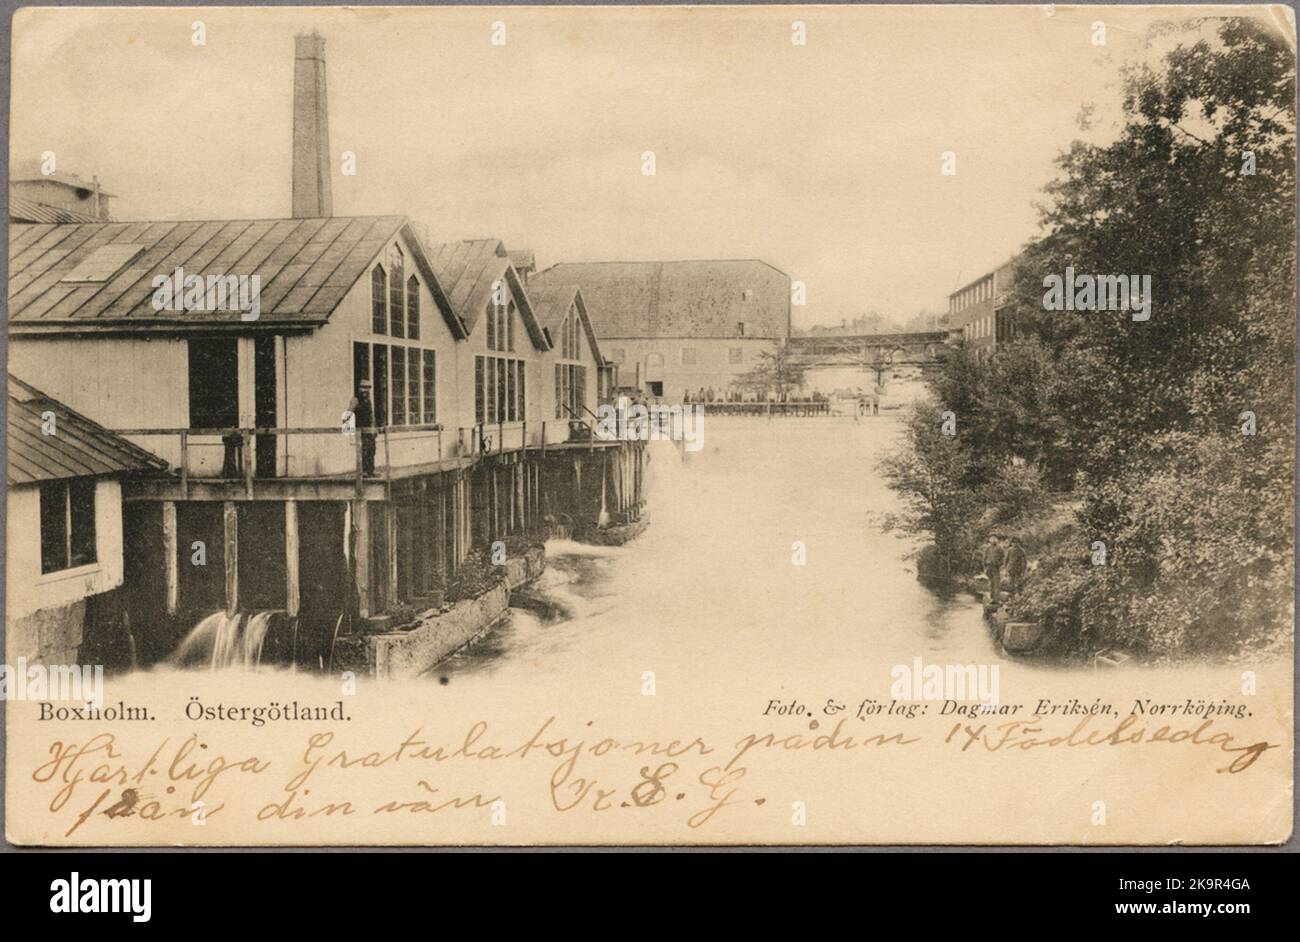 Boxholm. Östergötland.
Foto. & förlag: Dagmar Eriksén, Norrköping.
Hårtliga Gratulatsjoner pådin 14 Födelsedag
från din vän K.E.G.
alamy
alamy
Image ID: K9R4GA
www.alamy.com